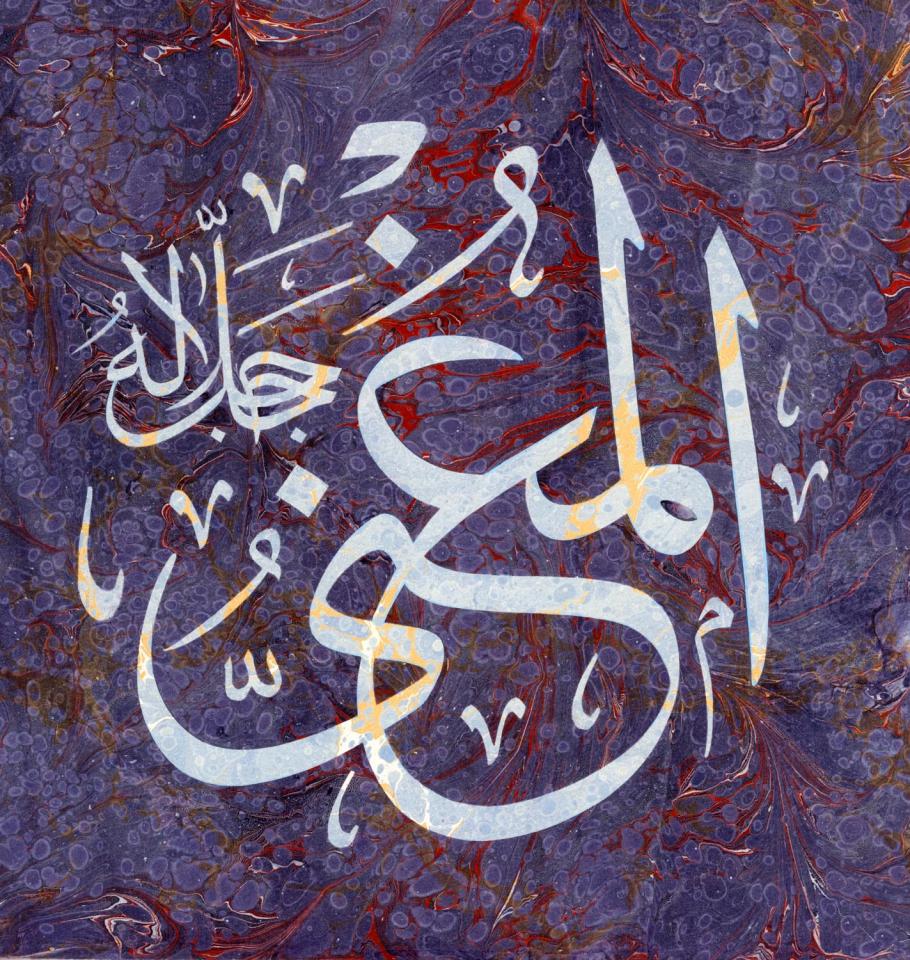 المغنى جل جلاله